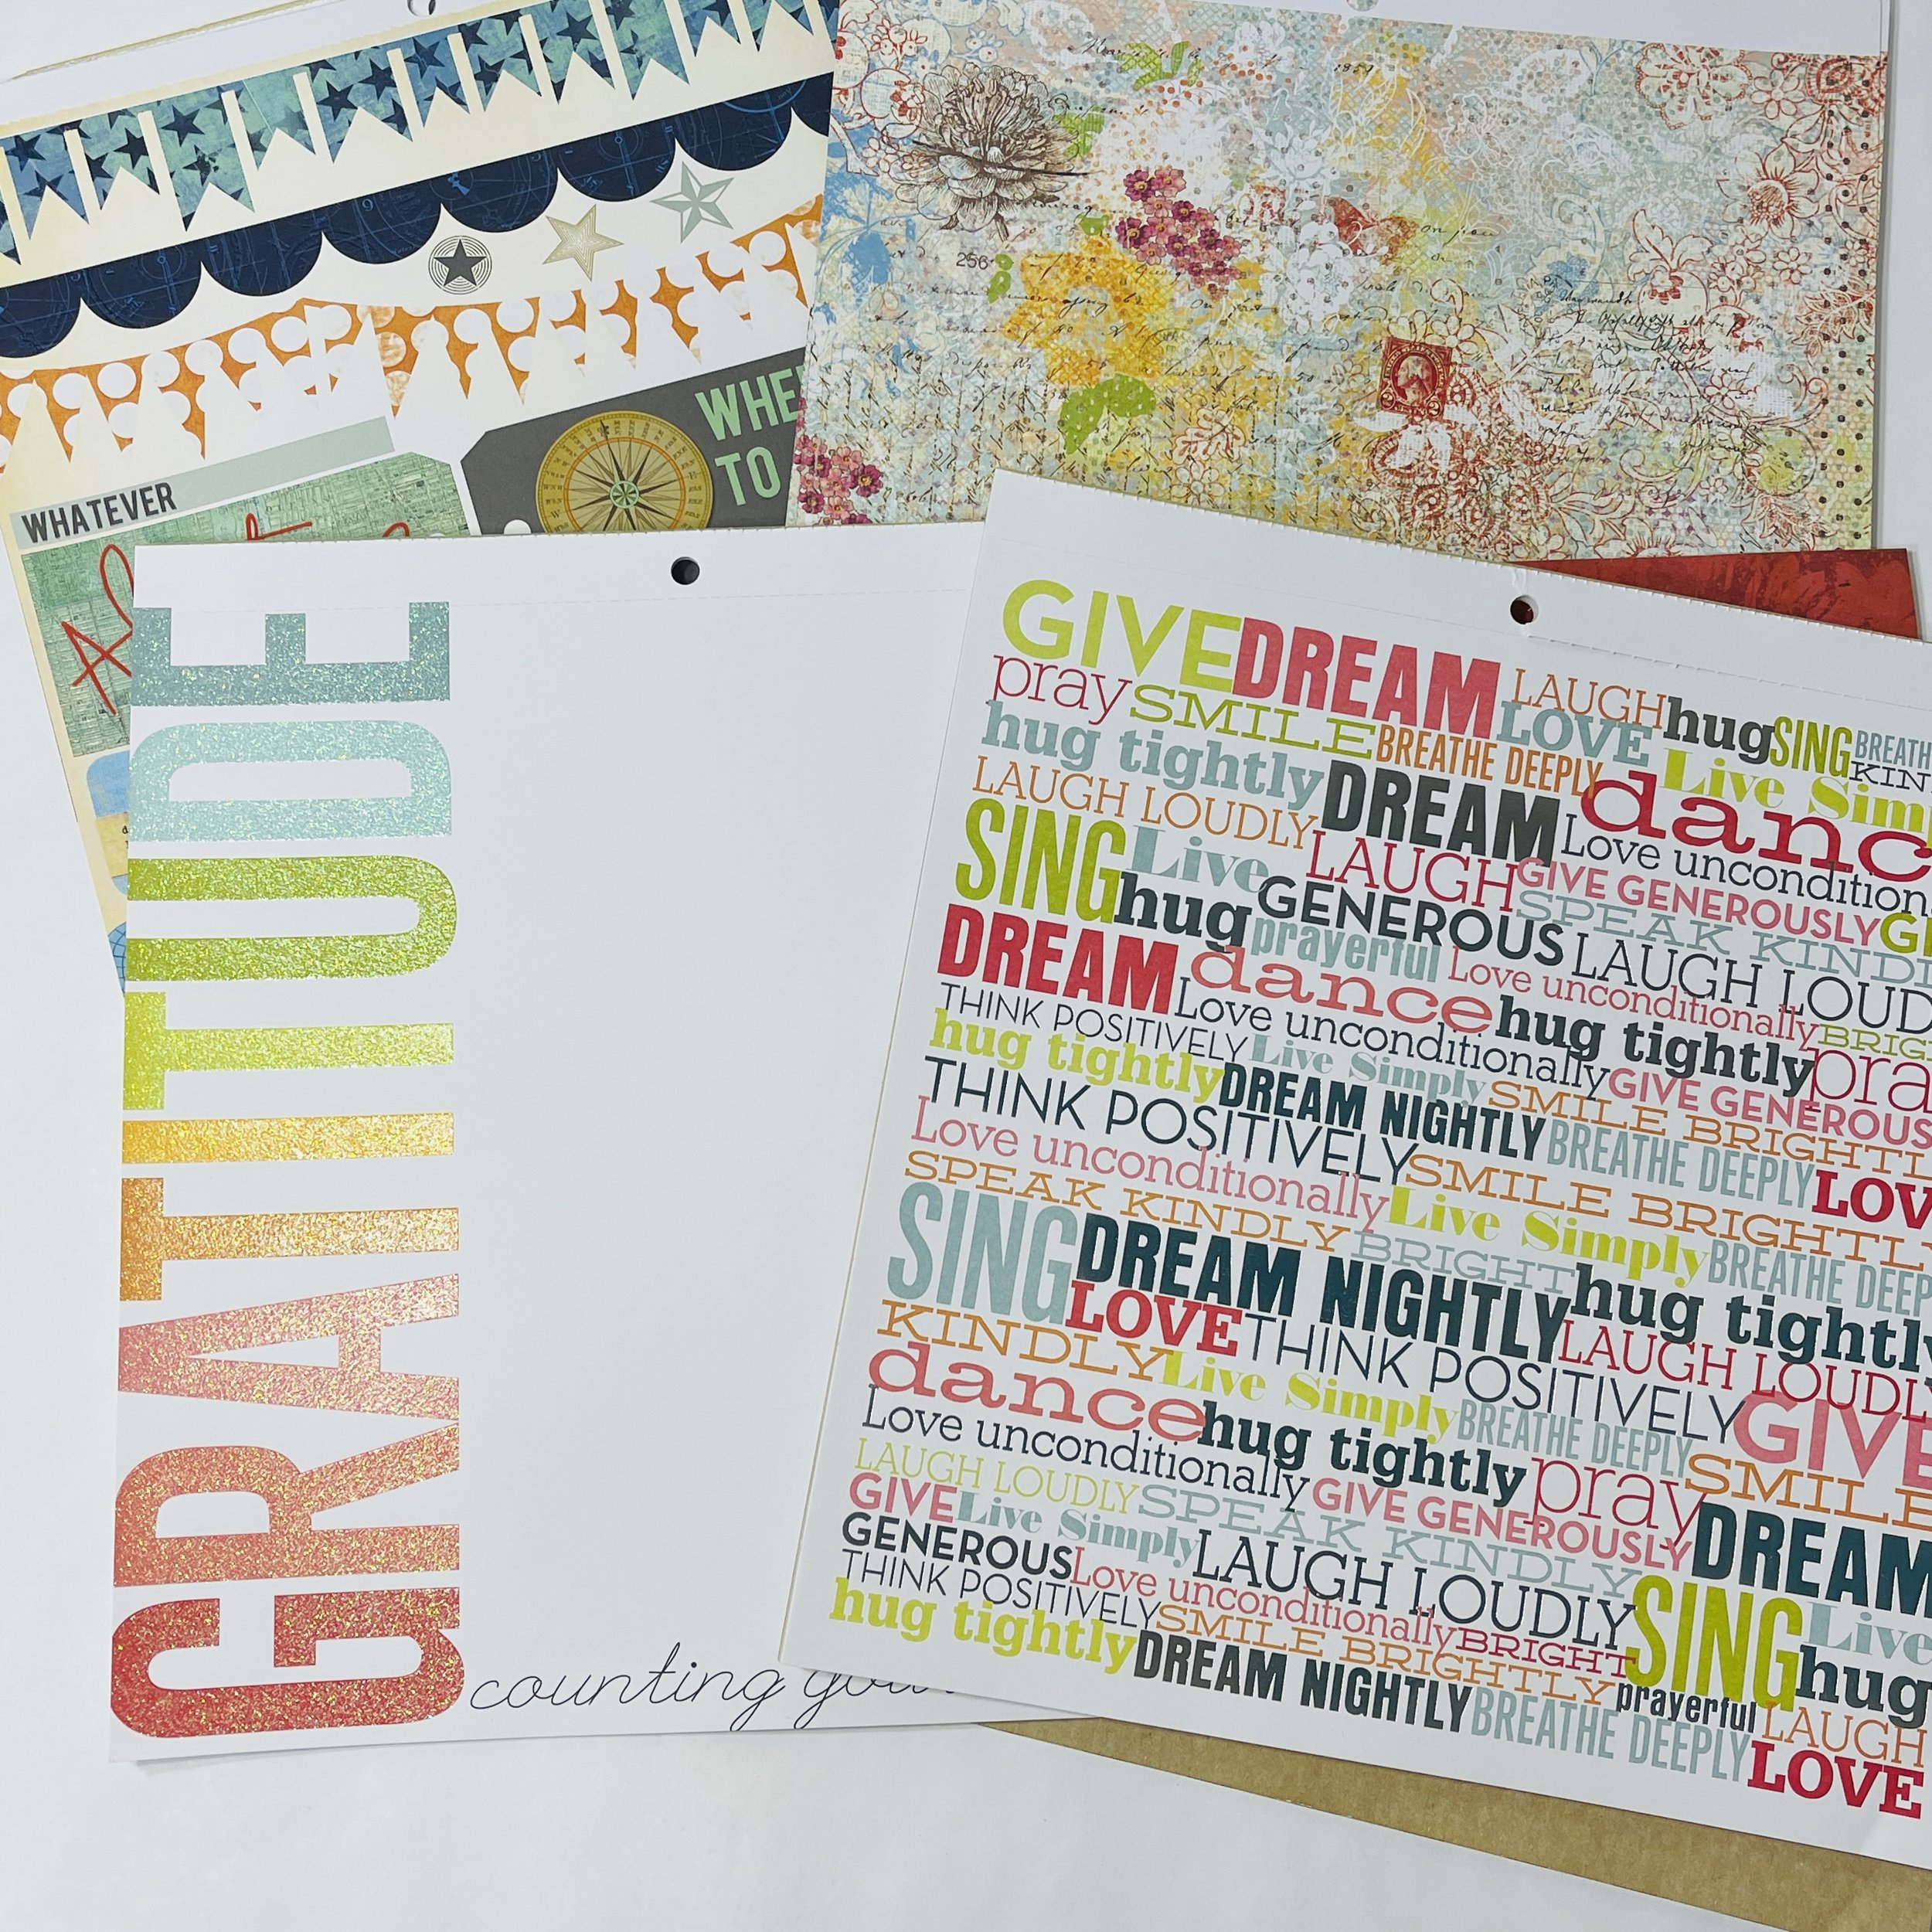 1857
256
WHE
TO
WHATEVER
GRATITUDE
counting your
GIVE DREAM LAUGH hug SING BREATH
pray SMILE LOVE Live Simp KIN
hug tightly BREATHE DEEPLY danc
LAUGH LOUDLY DREAM Love uncondition
SING Live LAUGH GIVE GENEROUSLY GI
hug GENEROUS SPEAK KINDL
prayerful LAUGH LOUD
DREAM dance Love unconditionally BRIG
THINK POSITIVELY Love unconditionally hug tightly pra
hug tightly Live Simply GIVE GENEROUS
THINK POSITIVELY DREAM NIGHTLY SMILE BRIGHTL
Love unconditionally BREATHE DEEPLY LOV
SPEAK KINDLY Live Simply SMILE BRIGHTLY
SING DREAM NIGHTLY BRIGHT hug tightly BREATHE DEEP
LOVE THINK POSITIVELY LAUGH LOUDL
KINDLY Live Simply GIVE
dance BREATHE DEEPLY SMILE
Love unconditionally hug tightly pray
LAUGH LOUDLY SPEAK KINDLY GIVE GENEROUSLY DREAM
GIVE Live Simply
GENEROUS LAUGH LOUDLY SING Live
THINK POSITIVELY Love unconditionally BRIGHT hug
hug tightly SMILE BRIGHTLY prayerful LAUGH
DREAM NIGHTLY BREATHE DEEPLY LOVE